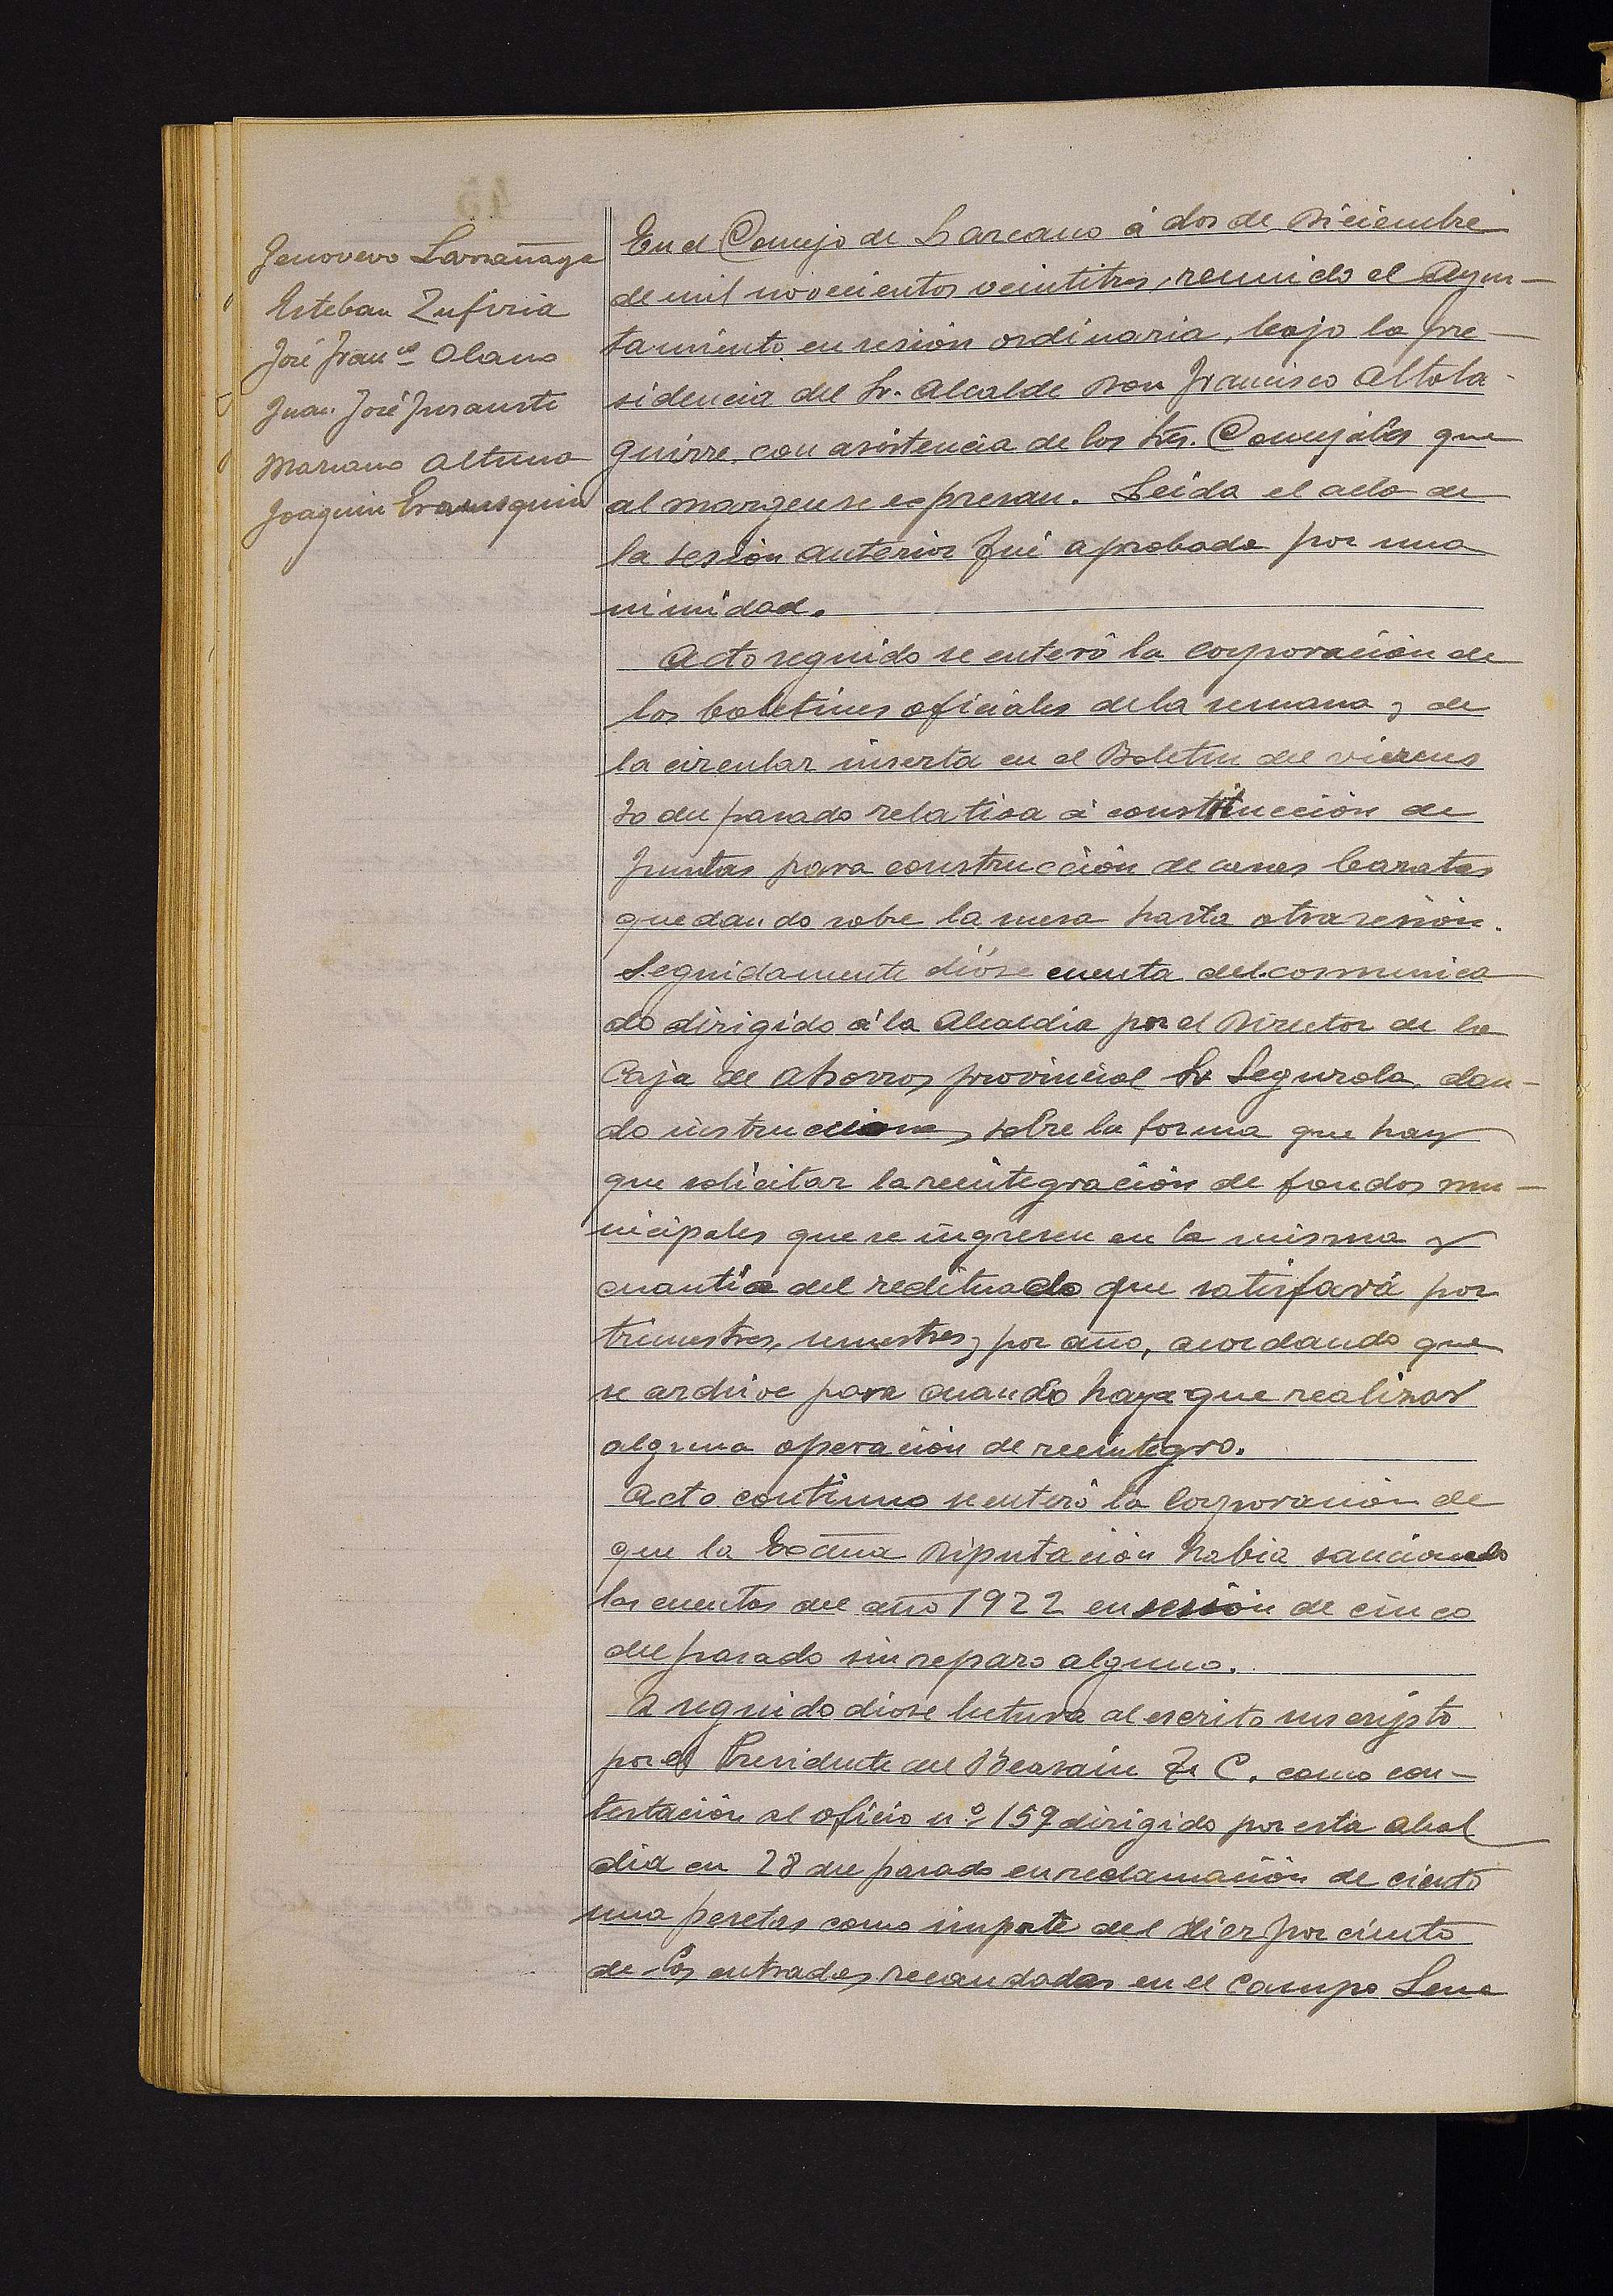 Jenovevo Larrañaga
Esteban Zufiria
José Franco Olano
Juan José Insausti
Mariano Altuna
Joaquin Erausquin
En el Concejo de Lazcano á dos de Diciembre
de mil novecientos veintitres, reunido el Ayun-
tamiento en sesión ordinaria, bajo la pre-
sidencia del Sr. Alcalde Don Francisco Altola-
guirre, con asistencia de los Srs. Concejales que
al margen se expresan. Leida el acta de
la sesión anterior fué aprobada por una
nimidad.
Acto seguido se enteró la corporación de
los boletines oficiales de la semana y de
la circular inserta en el Boletin del viernes
30 del pasado relativa á constitucción de
Juntas para construcción de casas baratas
quedando sobre la mesa hasta otra sesión.
Seguidamente dióse cuenta del comunica
do dirigido á la Alcaldia por el Director de la
Caja de Ahorros provincial Sr Segurola, dan-
do instrucciones sobre la forma que hay
que solicitar la reintegración de fondos mu-
nicipales que se ingresen en la misma y
cuantia del redituado que satisfará por
trimestres, semestres y por año, acordando que
se archive para cuando haya que realizar
alguna operación de reeintegro.
Acto continuo se enteró la Corporación de
que la Exma Diputación habia sancionado
las cuentas del año 1922 en sesión de cinco
del pasado sin reparo alguno.
A seguido dióse lectura al escrito suscripto
por el Presidente del Beasain F. C. como con-
testación al oficio nº 159 dirigido por esta Alcal
dia en 28 del pasado en reclamación de ciento
una pesetas como importe del diez por ciento
de las entradas recaudadas en el campo Sena